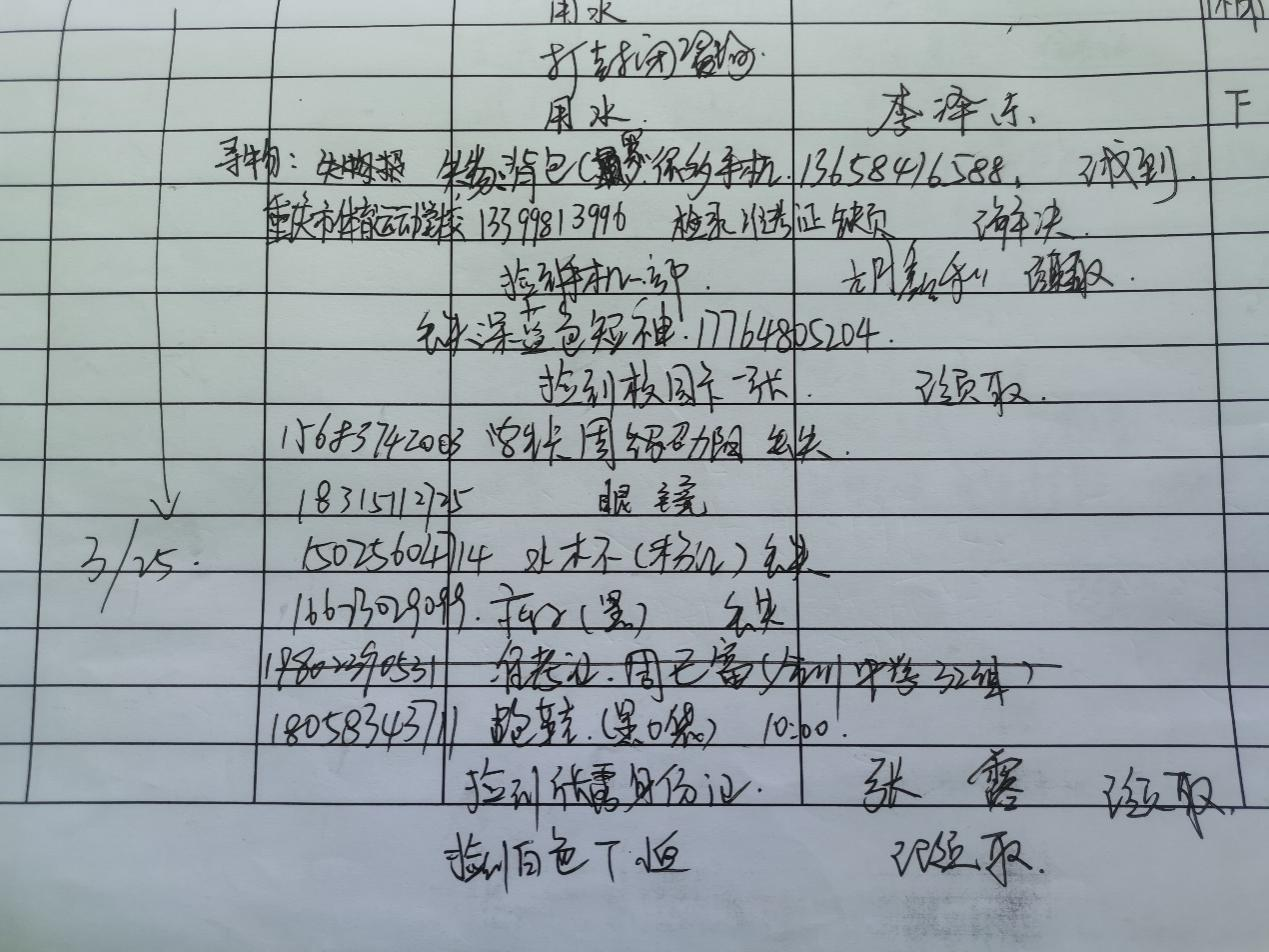 用水
打封闭
用水. 李泽东. 下
寻物: 失物招 失物: 背包( 黑). 保的手机. 13658416588. 已找到.
重庆市体育运动学校 13399813996 检录准考证缺页 已解决.
捡到手机一部. 已领取.
丢失: 深蓝色短袖. 17764805204.
捡到校园卡一张. 已领取.
15683742003 周绍阳 丢失.
18315712725 眼镜
3/25. 15025604714 水杯 ( ) 丢失
16673029099. (黑) 丢失
19802390531 准考证. 周 富( 中学 32组)
18058343711 跑鞋. (黑口袋) 10:00.
捡到张露身份证. 张露 已领取.
捡到白色T恤 已领取.